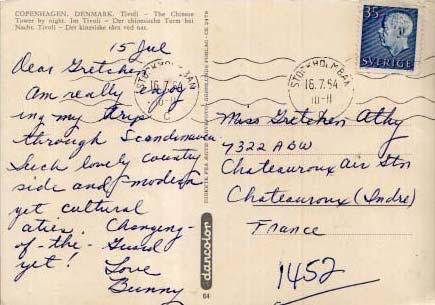 COPENHAGEN, DENMARK. Tivoli - The Chinese
Tower by night. Im Tivoli - Der chinesische Turm bei
Nacht. Tivoli - Det kinesiske tårn ved nat.
15 Jul
Dear Gretchen
Am really enjoy
ing my trip
through Scandinavia
Such lovely country
side and modern
yet cultural
cities. Changing-
of-the-Guard
yet! Love
Bunny
dancolor
64
STOCKHOLM BAN
16.7.54
10-11
C
STOCKHOLM BAN
16.7.54
10-11
35
SVERIGE
Miss Gretchen Athy
7322 ABW
Chateauroux Air Stn
Chateauroux (Indre)
France
1452